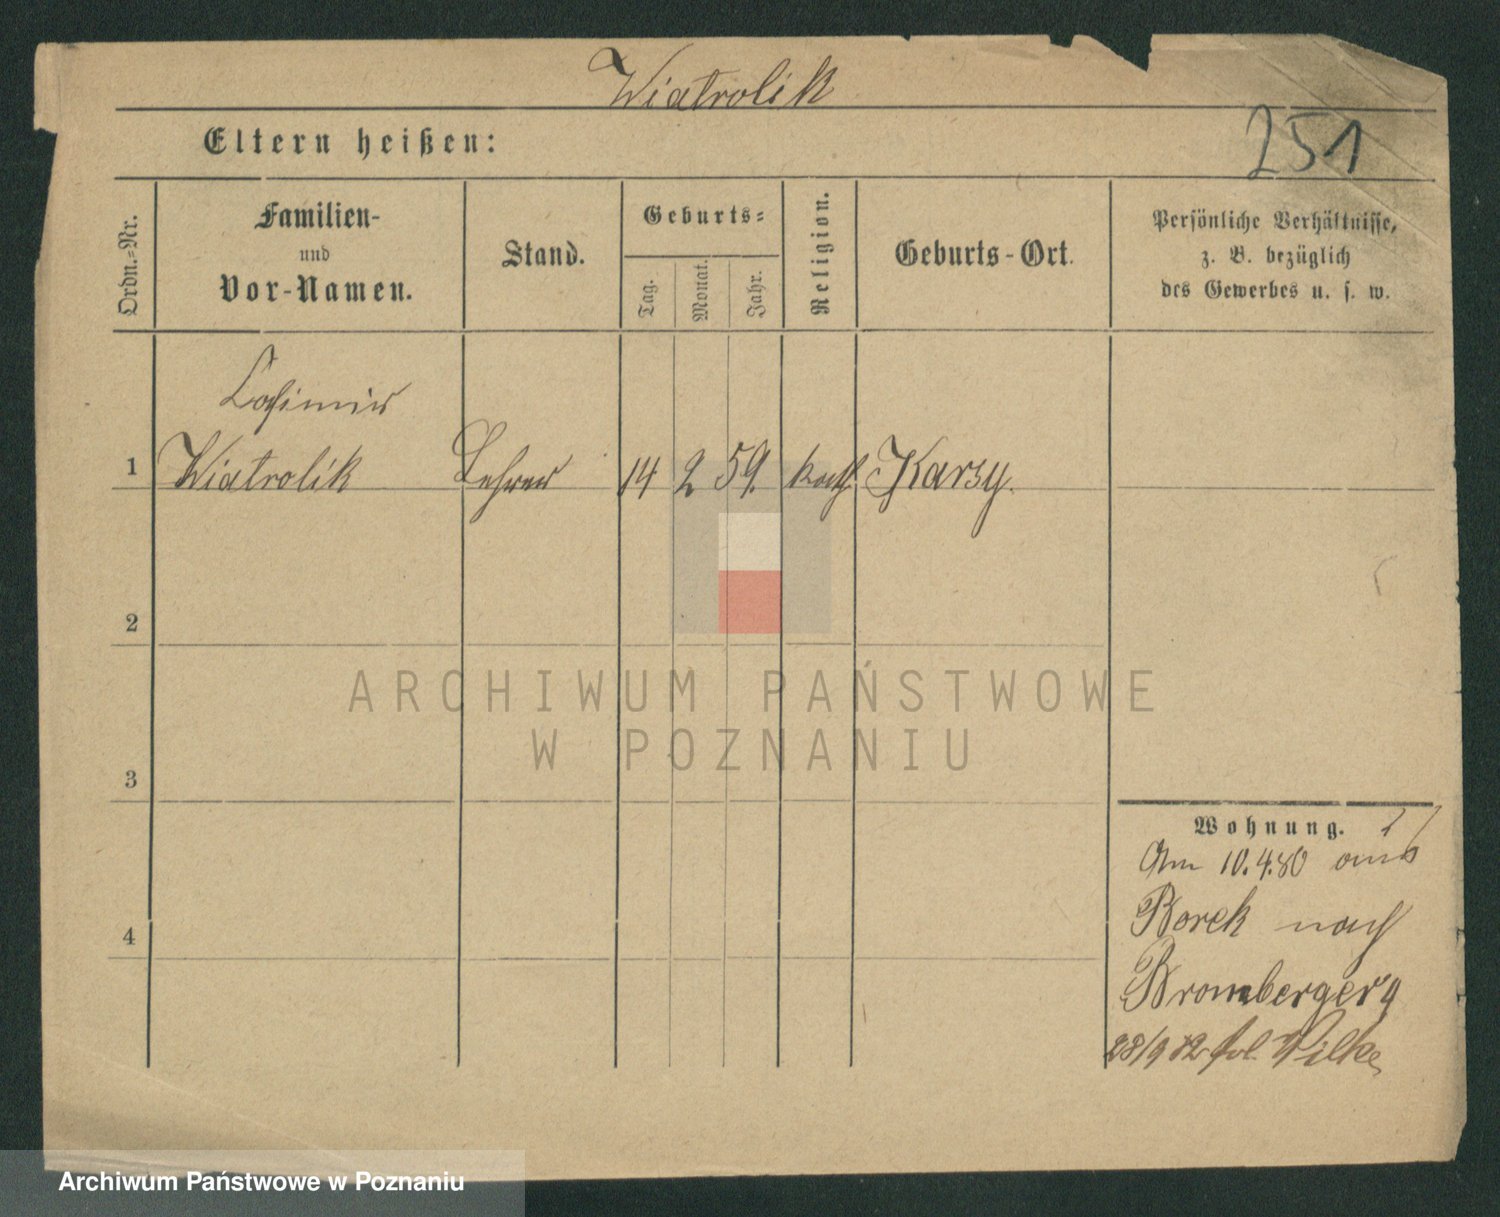 Wiatrolik
Eltern heißen:
251
Ordn.=Nr.
Familien-
und
Vor-Namen.
Stand.
Geburts=
Tag.
Monat.
Jahr.
Religion.
Geburts-Ort.
Persönliche Verhältnisse,
z. B. bezüglich
des Gewerbes u. s. w.
Casimir
1 Wiatrolik Lehrer 14 2 59. kath Karsy.
2
3
4
Wohnung.
Am 10.4.80 aus
Borek nach
Bromberger 4
28/9 82 Wilke
ARCHIWUM PAŃSTWOWE
W POZNANIU
Archiwum Państwowe w Poznaniu